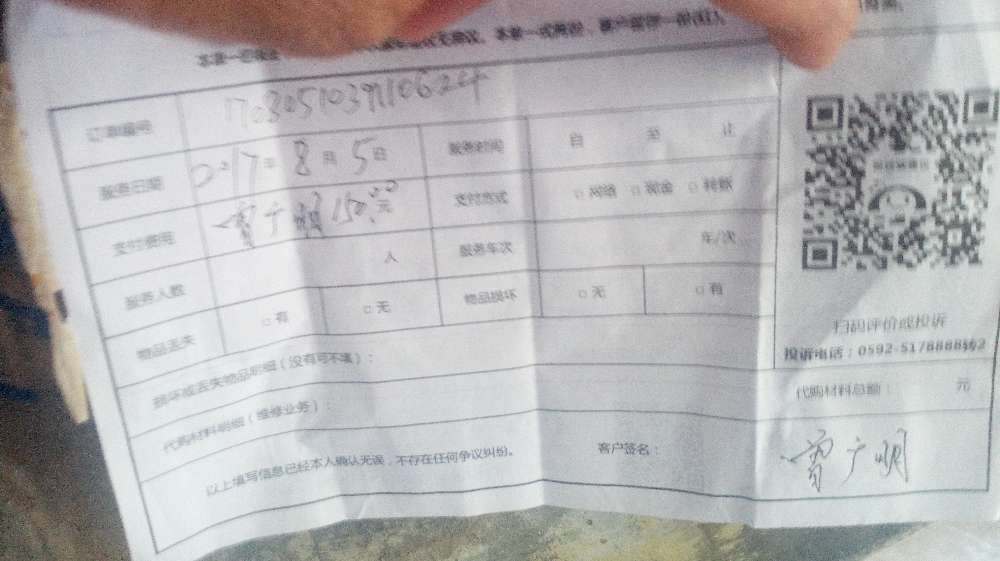 订单编号 1703051039110624
服务日期 2017年8月5日 服务时间 自 至 止
支付费用 曾广明150.00元 支付方式 □网络 □现金 □转账
服务人数 人 服务车次 车/次
物品丢失 □有 □无 物品损坏 □无 □有
扫码评价或投诉
投诉电话：0592-5178888转2
损坏或丢失物品明细（没有可不填）：
代购材料明细（维修业务）： 代购材料总额： 元
以上填写信息已经本人确认无误，不存在任何争议纠纷。 客户签名： 曾广明